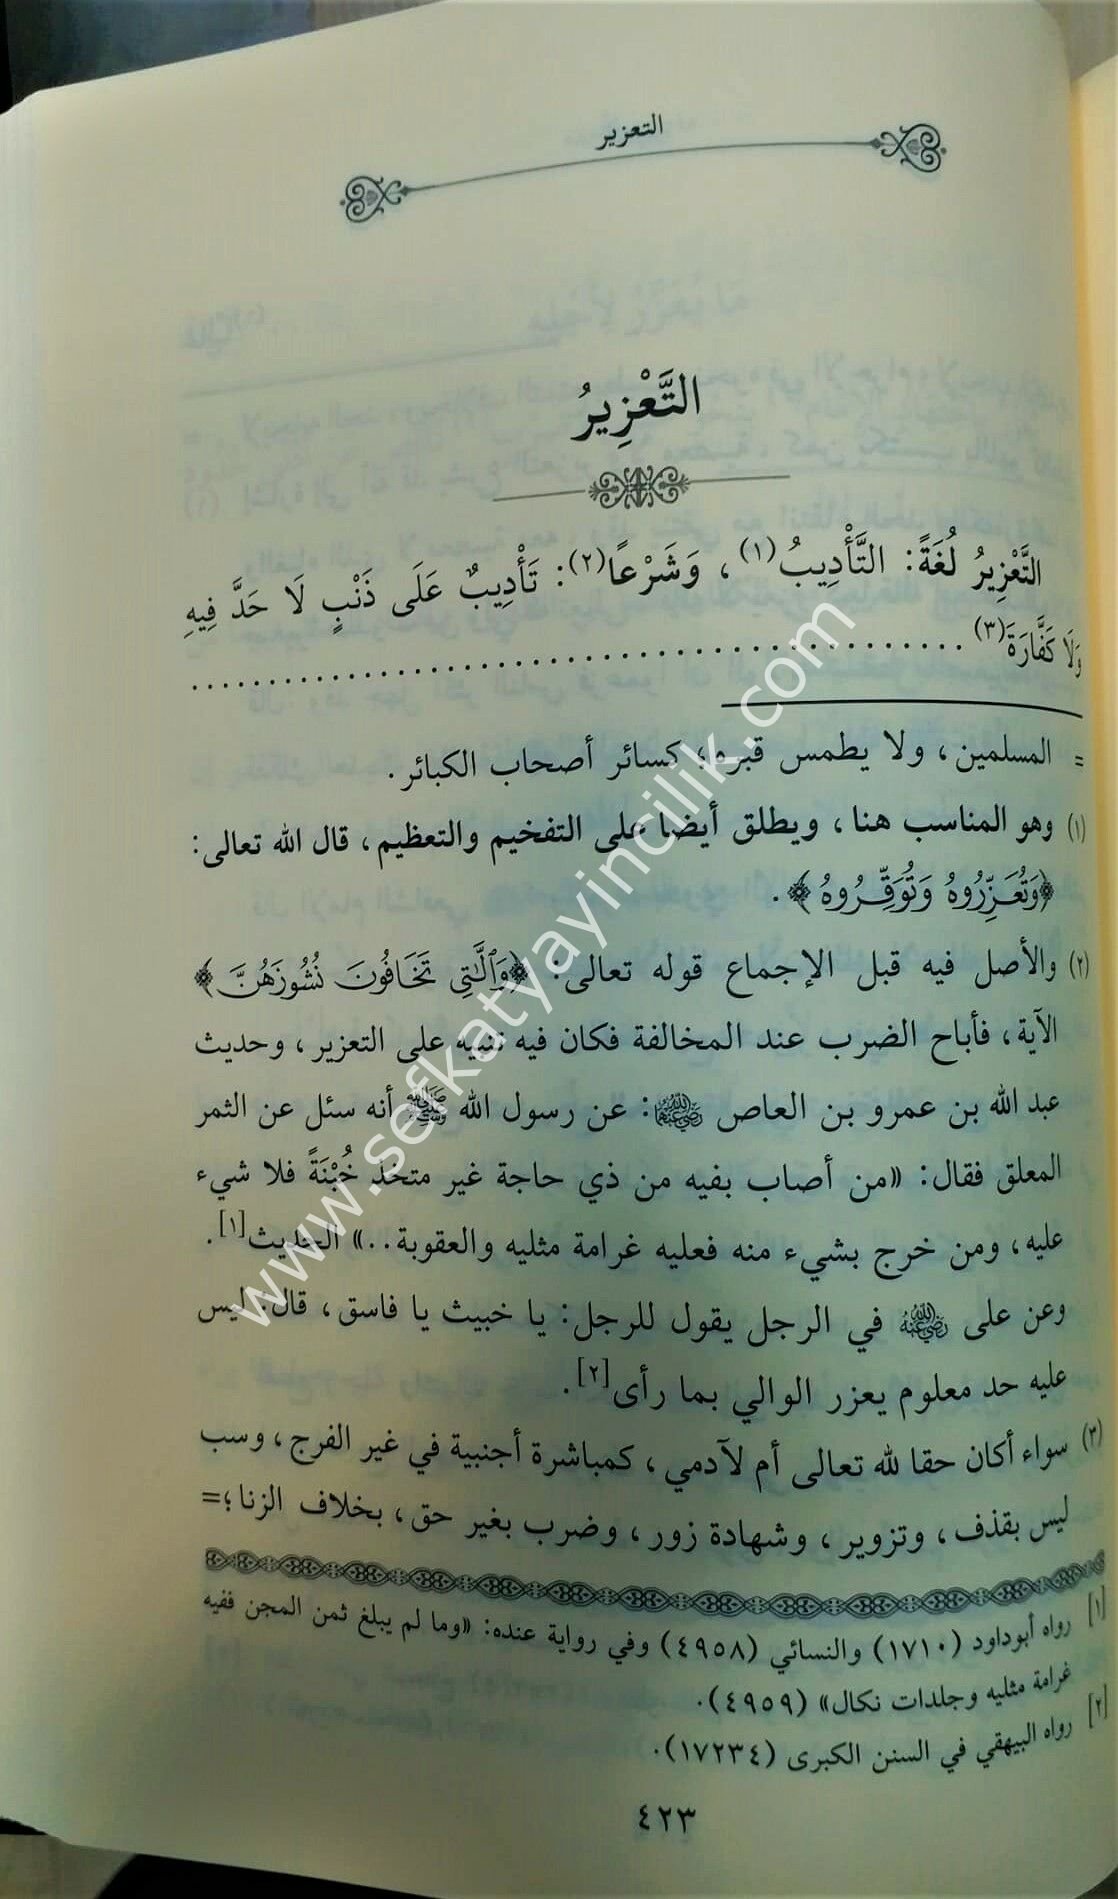 التعزير
التَّعْزِيرُ
التَّعْزِيرُ لُغَةً: التَّأْدِيبُ(١)، وَشَرْعًا(٢): تَأْدِيبٌ عَلَى ذَنْبٍ لَا حَدَّ فِيهِ
وَلَا كَفَّارَةَ(٣) ........................................
= المسلمين، ولا يطمس قبره؛ كسائر أصحاب الكبائر.
(١) وهو المناسب هنا، ويطلق أيضا على التفخيم والتعظيم، قال الله تعالى:
﴿وَتُعَزِّرُوهُ وَتُوَقِّرُوهُ﴾.
(٢) والأصل فيه قبل الإجماع قوله تعالى: ﴿وَٱلَّـٰتِي تَخَافُونَ نُشُوزَهُنَّ﴾
الآية، فأباح الضرب عند المخالفة فكان فيه تنبيه على التعزير، وحديث
عبد الله بن عمرو بن العاص رضي الله عنهما: عن رسول الله ﷺ أنه سئل عن الثمر
المعلق فقال: «من أصاب بفيه من ذي حاجة غير متخذ خُبْنَةً فلا شيء
عليه، ومن خرج بشيء منه فعليه غرامة مثليه والعقوبة..» الحديث[١].
وعن على رضي الله عنه في الرجل يقول للرجل: يا خبيث يا فاسق، قال: ليس
عليه حد معلوم يعزر الوالي بما رأى[٢].
(٣) سواء أكان حقا لله تعالى أم لآدمي، كمباشرة أجنبية في غير الفرج، وسب
ليس بقذف، وتزوير، وشهادة زور، وضرب بغير حق، بخلاف الزنا؛=
[١] رواه أبوداود (١٧١٠) والنسائي (٤٩٥٨) وفي رواية عنده: «وما لم يبلغ ثمن المجن ففيه
غرامة مثليه وجلدات نكال» (٤٩٥٩).
[٢] رواه البيهقي في السنن الكبرى (١٧٢٣٤).
٤٢٣
www.sefkatyayincilik.com